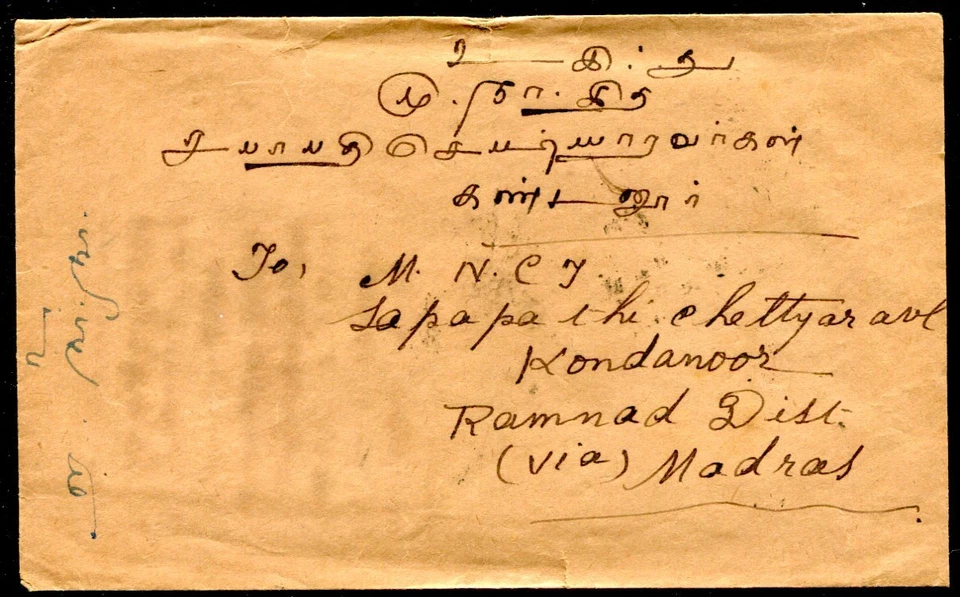 மு. நா. சித
சபாபதி செட்டியாரவர்கள்
கண்டனூர்
To, M. N. C T.
Sapapathi chettyar avl
Kondanoor
Ramnad Dist.
(via) Madras